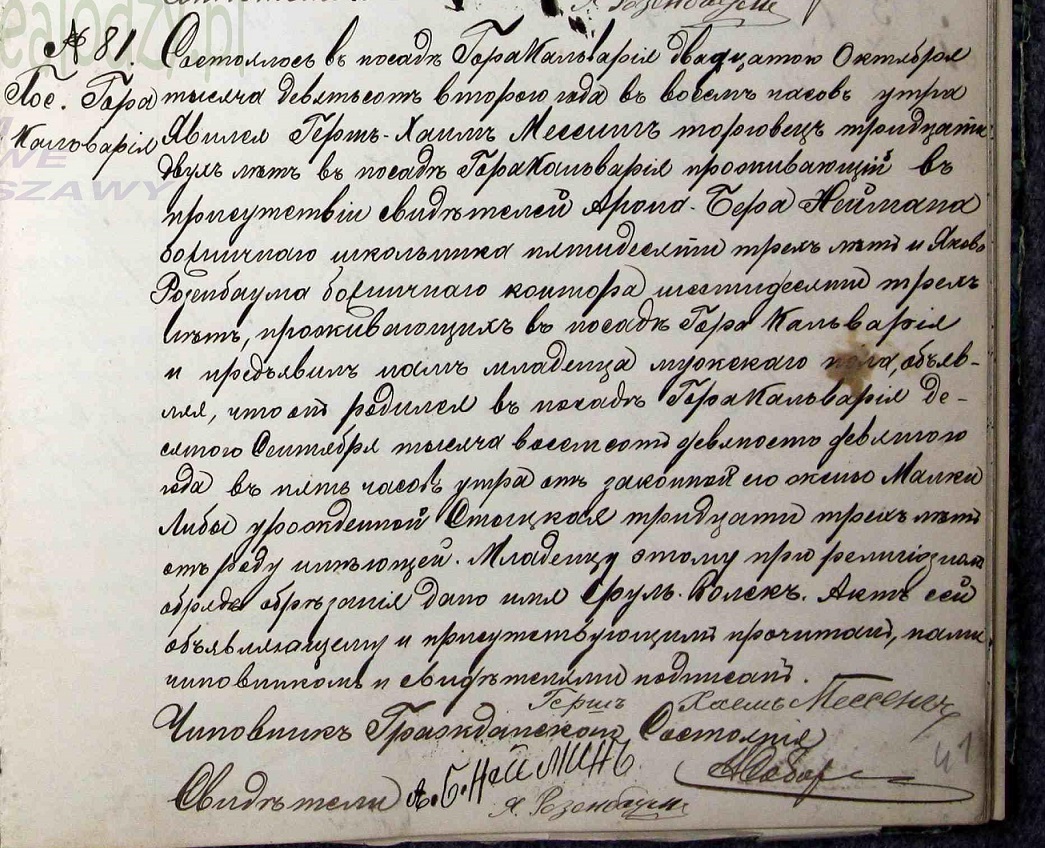 Я. Розенбаум
№ 81.
Пос. Гора
Кальварія
Состоялось въ посадѣ Гора Кальварія двадцатою Октября
тысяча девятьсотъ второго года въ восемь часовъ утра
Явился Гершъ-Хаимъ Мессингъ торговецъ тридцати
двухъ лѣтъ въ посадѣ Гора Кальварія проживающій въ
присутствіи свидѣтелей Арона-Бера Неймана
божничнаго школьника пятидесяти трехъ лѣтъ и Якова
Розенбаума божничнаго контора шестидесяти трехъ
лѣтъ, проживающихъ въ посадѣ Гора Кальварія
и предъявилъ намъ младенца мужскаго пола, объяв-
ляя, что онъ родился въ посадѣ Гора Кальварія де-
сятого Сентября тысяча восемсотъ девяносто девятого
года въ пять часовъ утра отъ законной его жены Малки
Либы урожденной Стоцкая тридцати трехъ лѣтъ
отъ роду имѣющей. Младенцу этому при религіозномъ
обрядѣ обрѣзанія дано имя Сруль-Волекъ. Актъ сей
объявляющему и присутствующимъ прочитанъ, нами
чиновникомъ и свидѣтелями подписанъ.
Гершъ Хаемъ
Чиновникъ Гражданского Состоянія
Свидѣтели А. Б. Нейминъ
Я. Розенбаум
41
ealodzy.pl
WE
SZAWY